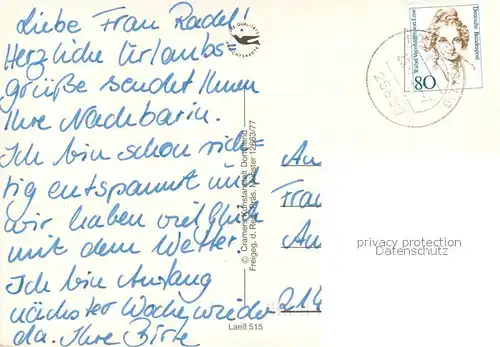 Liebe Frau Radel!
Herzliche Urlaubs-
grüße sendet Ihnen
Ihre Nachbarin.
Ich bin schon rich-
tig entspannt und
wir haben viel Glück
mit dem Wetter.
Ich bin Anfang
nächster Woche wieder
da. Ihre
An
Frau
An
214
© Cramers Kunstanstalt Dortmund
Freigeg. d. Reg. Präs. Münster 12663/77
Laeß 515
Deutsche Bundespost
Rahel Varnhagen von Ense
80
privacy protection
Datenschutz